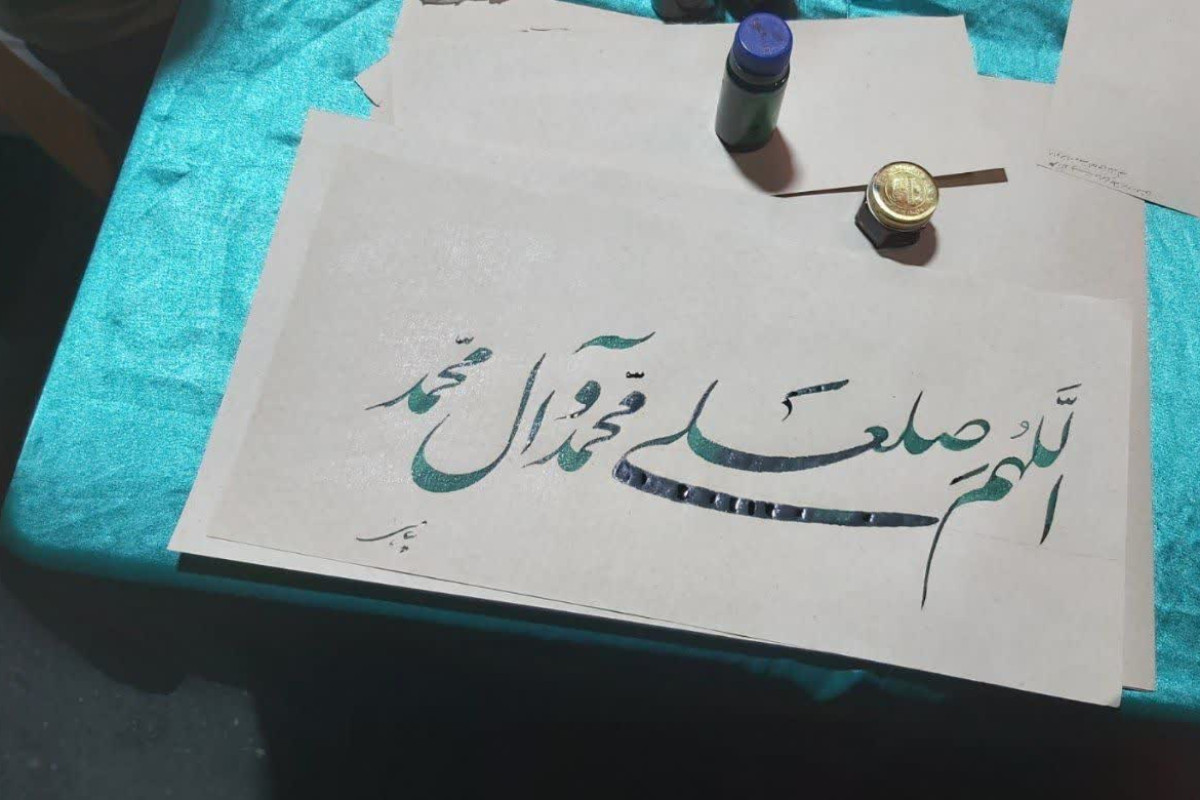 اللّهُم صل علی محمّد و آل محمّد